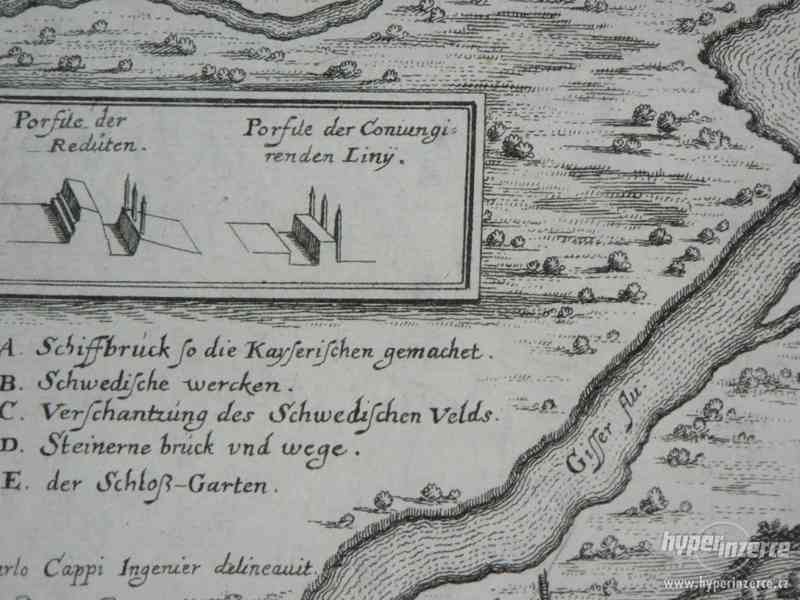 Porfile der
Redüten.
Porfile der Conungi=
renden Linÿ.
A. Schiffbrück ſo die Kayſeriſchen gemachet.
B. Schwediſche wercken.
C. Verſchantzüng des Schwediſchen Velds.
D. Steinerne brück vnd wege.
E. der Schloß-Garten.
Giſſer flu.
Cappi Ingenier delineauit.
hyperinzerce
www.hyperinzerce.cz